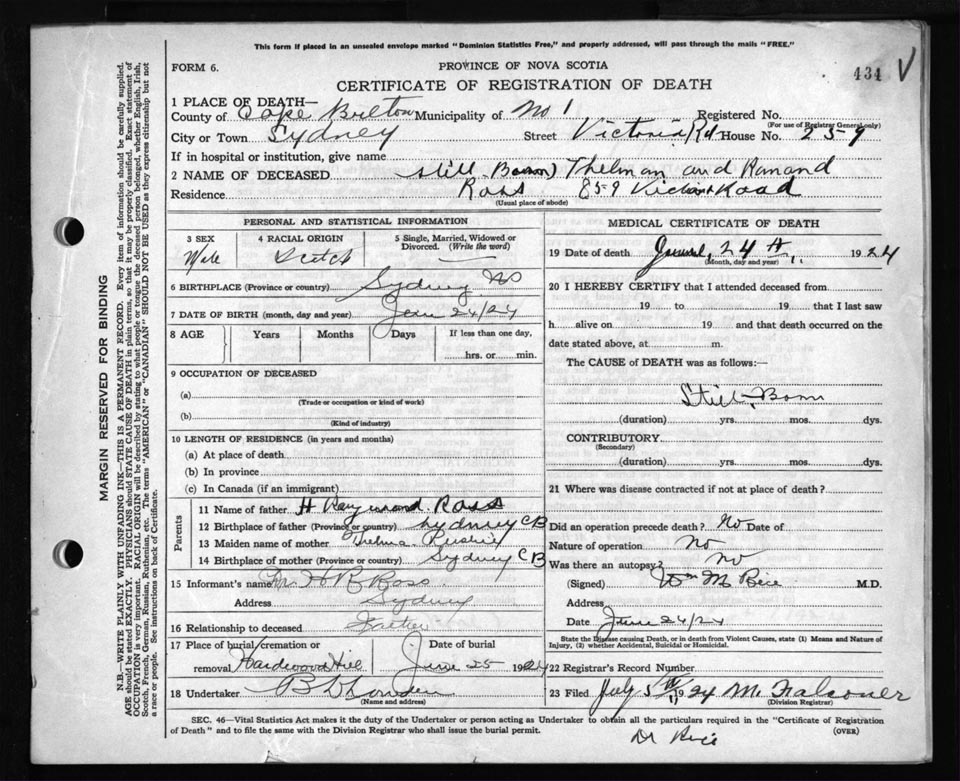 This form if placed in an unsealed envelope marked "Dominion Statistics Free," and properly addressed, will pass through the mails "FREE."
FORM 6.
PROVINCE OF NOVA SCOTIA
434 V
CERTIFICATE OF REGISTRATION OF DEATH
1 PLACE OF DEATH—
County of Cape Breton Municipality of No 1 Registered No.
(For use of Registrar General only)
City or Town Sydney Street Victoria Rd House No. 259
If in hospital or institution, give name
2 NAME OF DECEASED Still Born) Thelman and Ramand
Residence Ross 859 Victoria Road
(Usual place of abode)
PERSONAL AND STATISTICAL INFORMATION
3 SEX
Male
4 RACIAL ORIGIN
Scotch
5 Single, Married, Widowed or Divorced. (Write the word)
6 BIRTHPLACE (Province or country) Sydney NS
7 DATE OF BIRTH (month, day and year) June 24/24
8 AGE Years Months Days If less than one day,
hrs. or min.
9 OCCUPATION OF DECEASED
(a)
(Trade or occupation or kind of work)
(b)
(Kind of industry)
10 LENGTH OF RESIDENCE (in years and months)
(a) At place of death
(b) In province
(c) In Canada (if an immigrant)
Parents
11 Name of father H Raymond Ross
12 Birthplace of father (Province or country) Sydney CB
13 Maiden name of mother Thelma
14 Birthplace of mother (Province or country) Sydney CB
15 Informant's name H R Ross
Address Sydney
16 Relationship to deceased Father
17 Place of burial, cremation or removal Hardwood Hill
Date of burial
June 25 1924
18 Undertaker
(Name and address)
MEDICAL CERTIFICATE OF DEATH
19 Date of death June 24th 1924
(Month, day and year)
20 I HEREBY CERTIFY that I attended deceased from
19 to 19 that I last saw
h alive on 19 and that death occurred on the
date stated above, at m.
The CAUSE of DEATH was as follows:—
Still-Born
(duration) yrs. mos. dys.
CONTRIBUTORY
(Secondary)
(duration) yrs. mos. dys.
21 Where was disease contracted if not at place of death?
Did an operation precede death? No Date of
Nature of operation no
Was there an autopsy? No
(Signed) Wm M Rice M.D.
Address
Date June 24/24
State the Disease causing Death, or in death from Violent Causes, state (1) Means and Nature of Injury, (2) whether Accidental, Suicidal or Homicidal.
22 Registrar's Record Number
23 Filed July 5th 1924 M. Falconer
(Division Registrar)
SEC. 46—Vital Statistics Act makes it the duty of the Undertaker or person acting as Undertaker to obtain all the particulars required in the "Certificate of Registration
of Death" and to file the same with the Division Registrar who shall issue the burial permit. (OVER)
Dr Rice
MARGIN RESERVED FOR BINDING
N.B.—WRITE PLAINLY WITH UNFADING INK—THIS IS A PERMANENT RECORD. Every item of information should be carefully supplied.
AGE should be stated EXACTLY. PHYSICIANS should STATE CAUSE OF DEATH in plain terms, so that it may be properly classified. Exact statement of
OCCUPATION is very important. RACIAL ORIGIN will be described by stating to what people or tongue the deceased person belonged, whether English, Irish,
Scotch, French, German, Russian, Ruthenian, etc. The terms "AMERICAN" or "CANADIAN" SHOULD NOT BE USED as they express citizenship but not
a race or people. See instructions on back of Certificate.